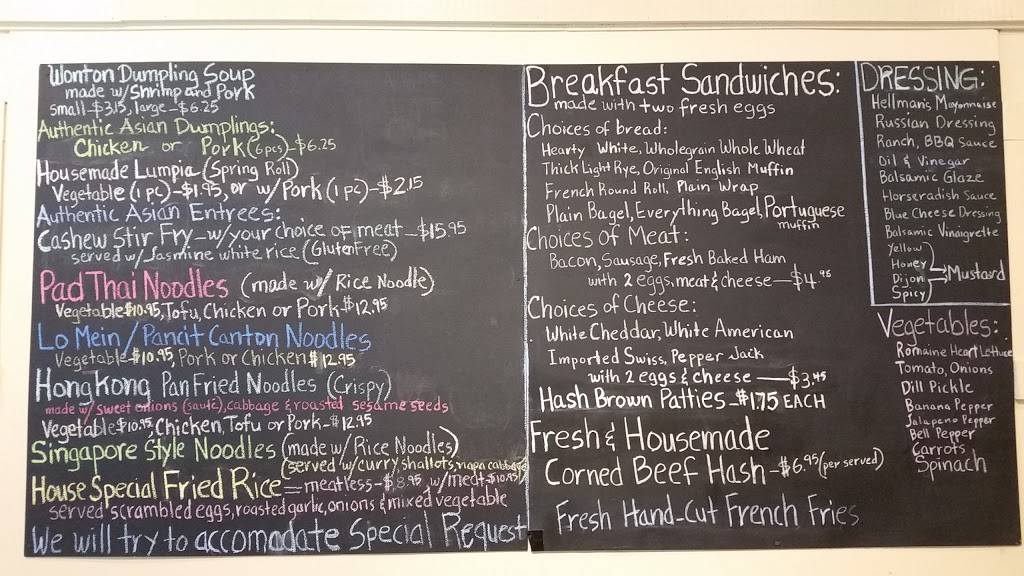 Wonton Dumpling Soup
made w/Shrimp and Pork
small-$3.15, large-$6.25
Authentic Asian Dumplings:
Chicken or Pork (6pcs)-$6.25
Housemade Lumpia (Spring Roll)
Vegetable (1 pc)-$1.95, or w/Pork (1 pc)-$2.15
Authentic Asian Entrees:
Cashew Stir Fry-w/your choice of meat-$15.95
served w/Jasmine white rice (GlutenFree)
Pad Thai Noodles (made w/ Rice Noodle)
Vegetable $10.95, Tofu, Chicken or Pork-$12.95
Lo Mein/Pancit Canton Noodles
Vegetable-$10.95, Pork or Chicken $12.95
Hong Kong Pan Fried Noodles (Crispy)
made w/sweet onions (sauté), cabbage & roasted sesame seeds
Vegetable $10.95, Chicken, Tofu or Pork-$12.95
Singapore Style Noodles (made w/Rice Noodles)
(served w/curry, shallots, napa cabbage
House Special Fried Rice = meatless-$8.95, w/meat-$10.95)
served scrambled eggs, roasted garlic, onions & mixed vegetable
We will try to accomodate Special Request
Breakfast Sandwiches:
made with two fresh eggs
Choices of bread:
Hearty White, Wholegrain Whole Wheat
Thick Light Rye, Original English Muffin
French Round Roll, Plain Wrap
Plain Bagel, Everything Bagel, Portuguese
muffin
Choices of Meat:
Bacon, Sausage, Fresh Baked Ham
with 2 eggs, meat & cheese-$4.95
Choices of Cheese:
White Cheddar, White American
Imported Swiss, Pepper Jack
with 2 eggs & cheese-$3.45
Hash Brown Patties-$1.75 EACH
Fresh & Housemade
Corned Beef Hash-$6.95 (per served)
Fresh Hand-Cut French Fries
DRESSING:
Hellman's Mayonnaise
Russian Dressing
Ranch, BBQ Sauce
Oil & Vinegar
Balsamic Glaze
Horseradish Sauce
Blue Cheese Dressing
Balsamic Vinaigrette
Yellow
Honey
Dijon
Spicy
Mustard
Vegetables:
Romaine Heart Lettuce
Tomato, Onions
Dill Pickle
Banana Pepper
Jalapeno Pepper
Bell Pepper
Carrots
Spinach